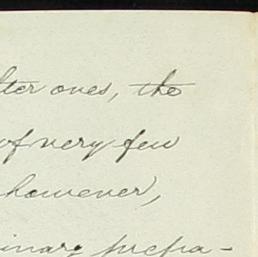 ter ones, the
of very few
however,
inary prepa-